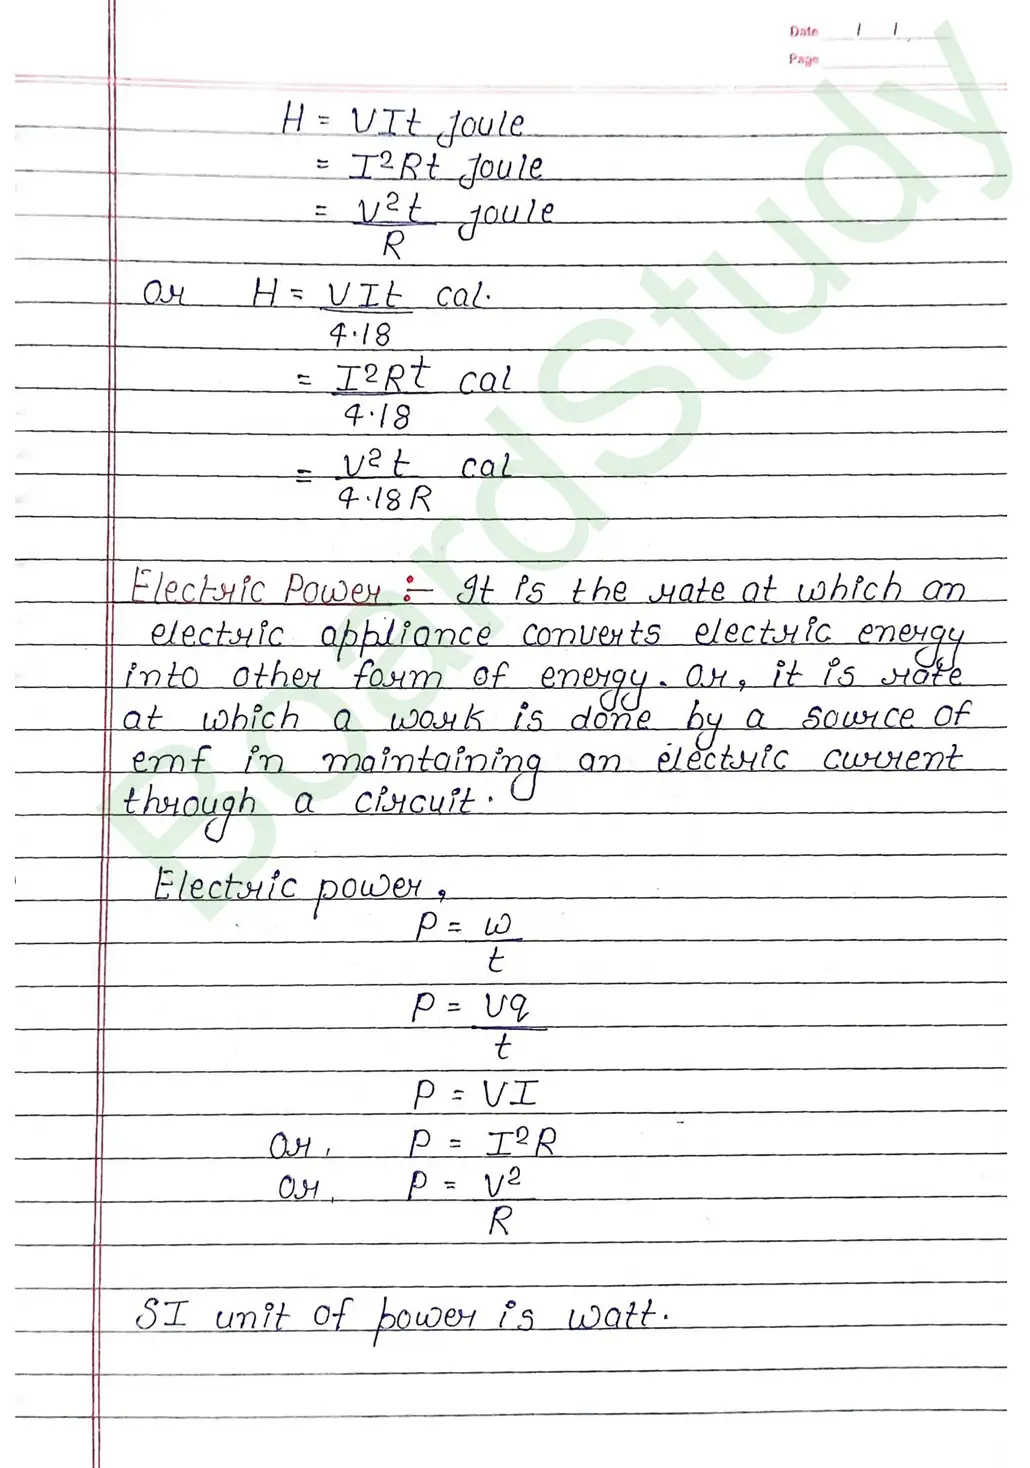 Date / / ,
Page
H = VIt Joule
= I²Rt Joule
= V²t joule
R
or H = VIt cal.
4.18
= I²Rt cal
4.18
= V²t cal
4.18R
Electric Power :- It is the rate at which an
electric appliance converts electric energy
into other form of energy. or, it is rate
at which a work is done by a source of
emf in maintaining an electric current
through a circuit.
Electric power,
P = w
t
P = Vq
t
P = VI
or, P = I²R
or, P = V²
R
SI unit of power is watt.
BoardStudy